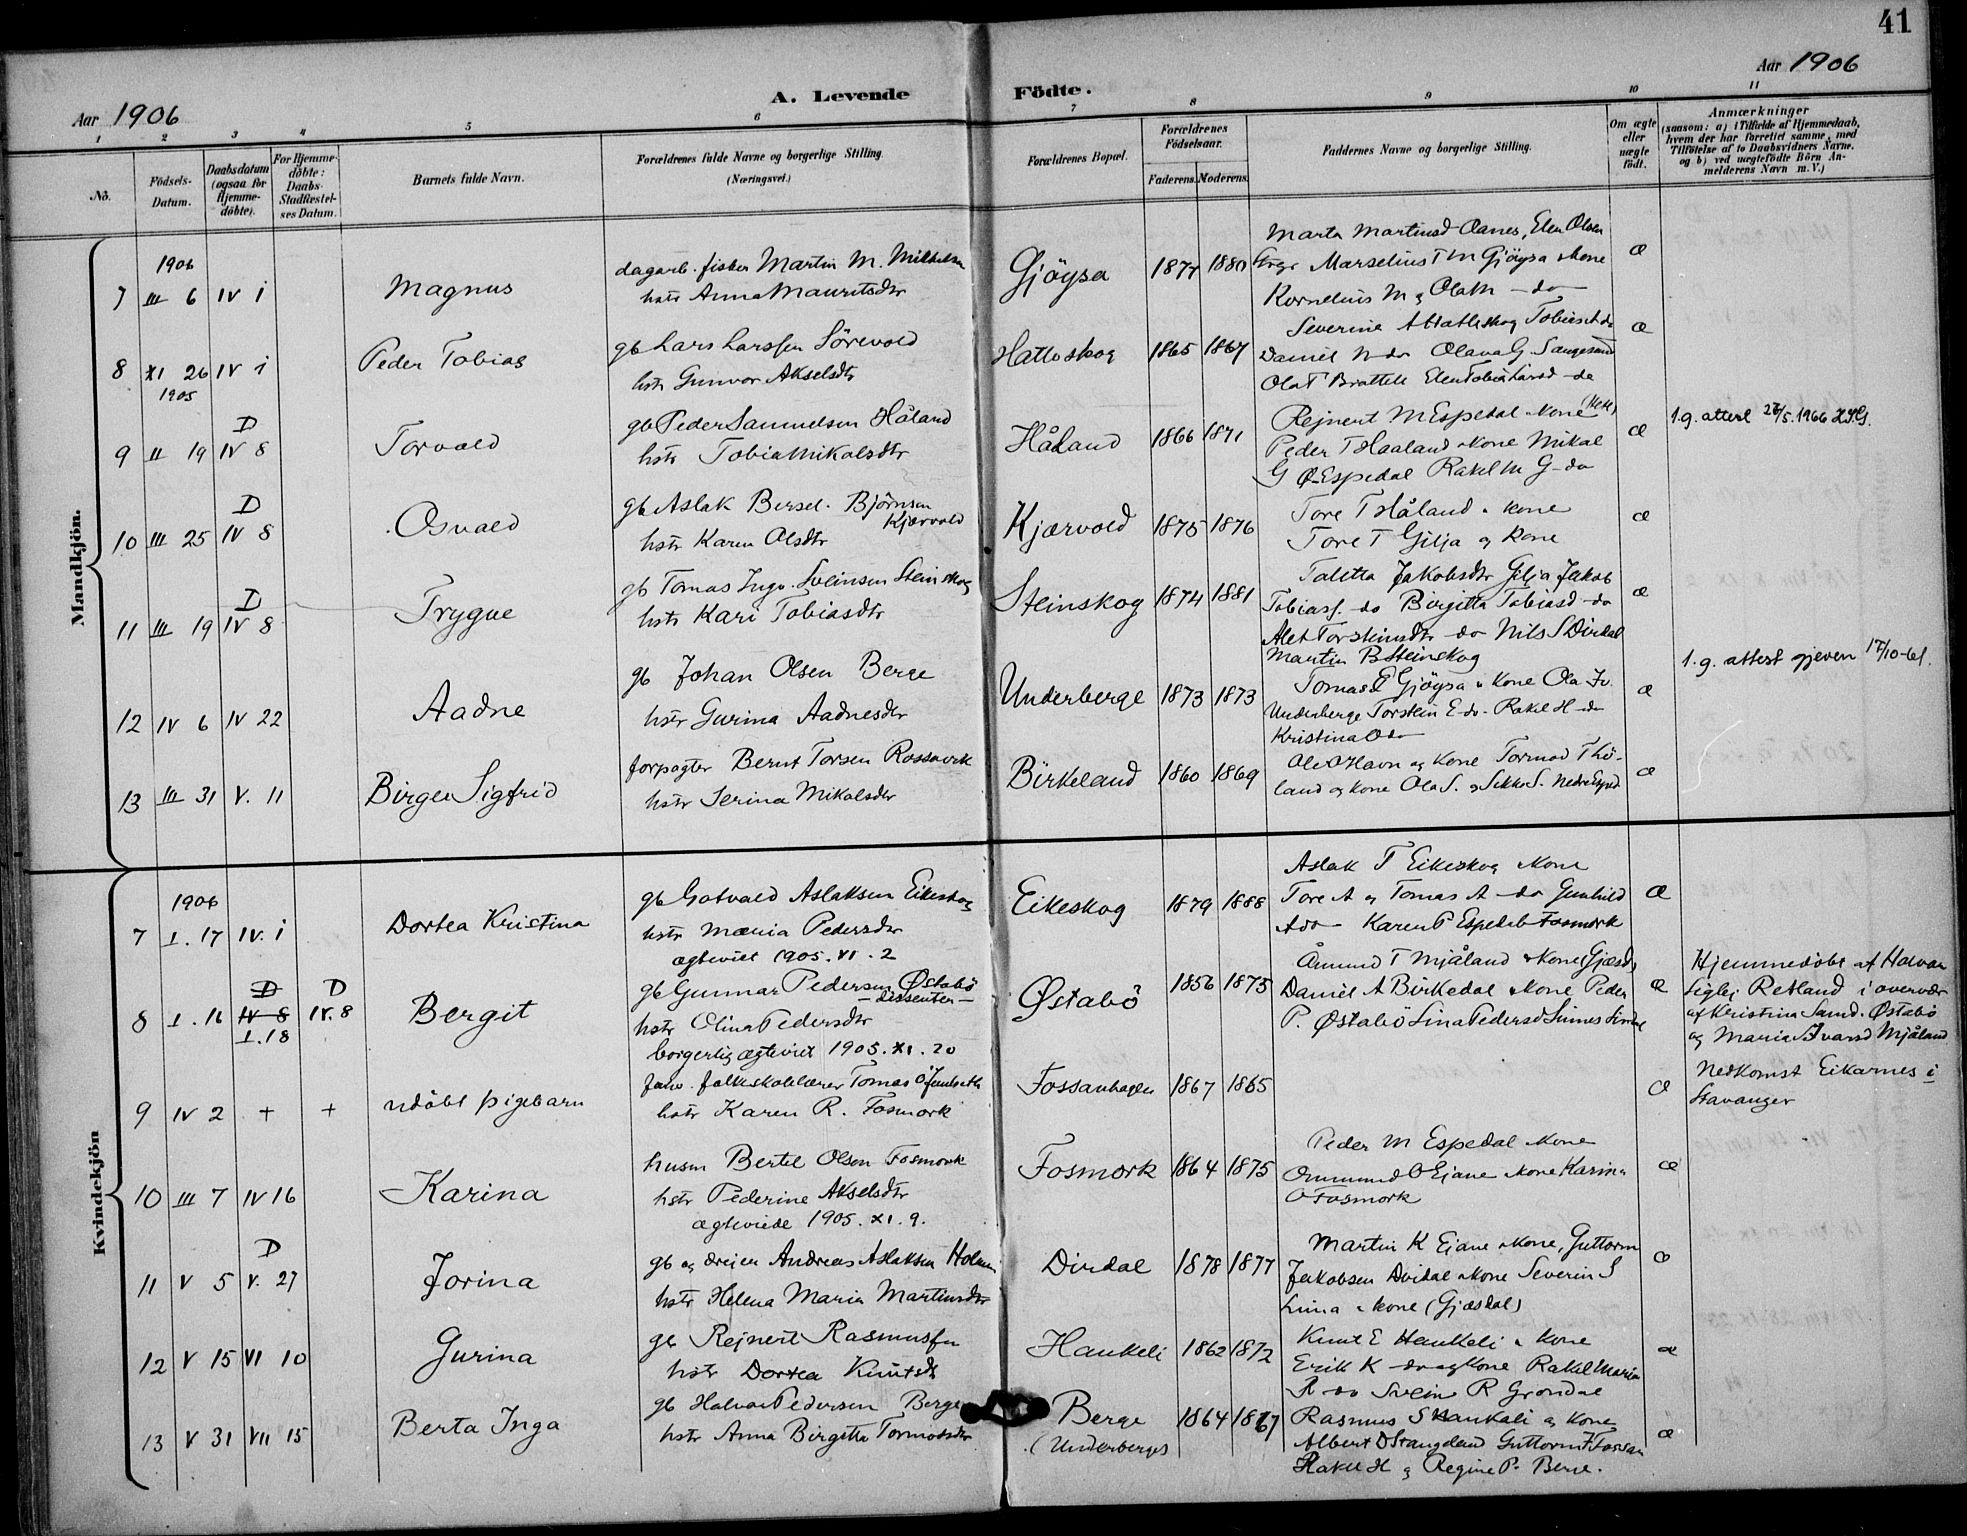 41
Aar 1906
Aar 1906
A. Levende Födte.
1 2 3 4 5 6 7 8 9 10 11
No.
Födsels-Datum.
Daabsdatum (ogsaa for Hjemmedöbte).
For Hjemmedöbte: Daabs-Stadfæstelses Datum.
Barnets fulde Navn.
Forældrenes fulde Navne og borgerlige Stilling.
(Næringsvei.)
Forældrenes Bopæl.
Forældrenes Födselsaar.
Faderens. Moderens.
Faddernes Navne og borgerlige Stilling.
Om ægte eller uægte födt.
Anmærkninger
(saasom: a) i Tilfælde af Hjemmedaab,
hvem der har forrettet samme, med
Tilföielse af to Daabsvidners Navne.
og b) ved uægtefödte Börn An-
melderens Navn m. V.)
Mandkjön.
1906
7 III 6 IV i Magnus
dagarb. fisker Martin M.
hstr Anna Mauritsdtr
Gjöysa 1877 1880
Marta Martinsd Oanes, Elen Olsen
Marselius T M Gjöysa & kone
Kornelius M & Ola M - do -
æ
8 XI 26 IV i Peder Tobias
1905
gb Lars Larssen Sörevold
hstr Gunvor Akselsdtr
Hatleskog 1865 1867
Severine A Hatleskog Tobias A do
Daniel N do Olava G. Saugesand
Ola T Brattele Elen Tobia Larsd - do
æ
D
9 II 19 IV 8 Torvald
gb Peder Samuelsen Håland
hstr Tobia Mikalsdtr
Håland 1866 1871
Rejnert M Espedal & kone
Peder T Haaland & kone Mikal
G Ø-Espedal Rakel M G - do
æ
1.g. attest 26/5.1966
D
10 III 25 IV 8 Osvald
gb Aslak Bersel. Björnsen
Kjærvold
hstr Karen Olsdtr
Kjærvold 1875 1876
Tore T Håland & kone
Tore T Gilja og kone
æ
D
11 III 19 IV 8 Trygve
gb Tomas Ingv. Sveinsen Steinskog
hstr Kari Tobiasdtr
Steinskog 1874 1881
Talitta Jakobsdtr Gilja Jakob
Tobiass. do Birgitta Tobiasd - do
Alet Torsteinsdtr - do Nils S Dirdal
Martin B Steinskog
æ
12 IV 6 IV 22 Aadne
gb Johan Olsen Berge
hstr Gurina Aadnesdtr
Underberge 1873 1873
Tomas Gjöysa & kone Ola Jo.
Underberge Torstein E - do - Rakel H - do
Kristina O do
æ
1.g. attest gjeven 17/10-61.
13 III 31 V. 11 Birger Sigfrid
forpagter Bernt Torsen Rossavik
hstr Serina Mikalsdtr
Birkeland 1860 1869
Ole O Havn og kone Tormod T Hö-
land og kone Ola S. & Sikke S. Nedre
æ
Kvindekjön
1906
7 I. 17 IV. i Dortea Kristina
gb Gotvald Aslaksen Eikeskog
hstr Maria Pedersdtr
ægteviet 1905. VI. 2
Eikeskog 1879 1888
Aslak T Eikeskog & kone
Tore A og Tomas A - do Gunhild
A do - Karen P Espedal Fosmork
æ
D D
8 I. 16 IV 8 IV. 8 Bergit
I. 18
gb Gunnar Pedersen Østabö
- dissenter -
hstr Olina Pedersdtr
borgerlig ægteviet 1905. XI. 20
Østabö 1856 1873
Åmund T Mjåland & kone (Gjæsd)
Daniel A Birkedal & kone Peder
P. Østabö Lina Pedersd
æ
Hjemmedöbt af Halvar
Siglej Retland i overvær
af Kristina Samd. Østabö
og Maria Ivarsd Mjåland
9 IV 2 + + udöbt pigebarn
forv. folkeskolelærer Tomas
hstr Karen R. Fosmork
Fossanhagen 1867 1865
æ
Nedkomst Eikarnes i
Stavanger
10 III 7 IV 16 Karina
husm Bertel Olsen Fosmork
hstr Pederine Akselsdtr
ægteviede 1905. XI. 9.
Fosmork 1864 1875
Peder M Espedal & kone
Ommund O Ejane & kone Karina
O Fosmork
æ
D
11 V 5 V. 27 Jorina
gb og drejer Andreas Aslaksen Holmen
hstr Helena Maria Martinsdtr
Dirdal 1878 1877
Martin K Ejane & kone, Guttorm
Jakobsen Dirdal & kone Severin S
Lima & kone (Gjæsdal)
æ
12 V 15 VI 10 Gurina
gb Rejnert Rasmussen
hstr Dortea Knutsdtr
Haukeli 1862 1872
Knut E Haukeli & kone
Erik K - do og kone Rakel Maria
R - do Svein R Gröndal
æ
13 V 31 VII 15 Berta Inga
gb Halvar Pedersen Berge
hstr Anna Birgitta Tormodsdtr
Berge 1864 1867
(Underberge)
Rasmus S Haukali og kone
Albert D Stangeland Guttorm F Fossan
Rakel H & Regine P. Berge.
æ